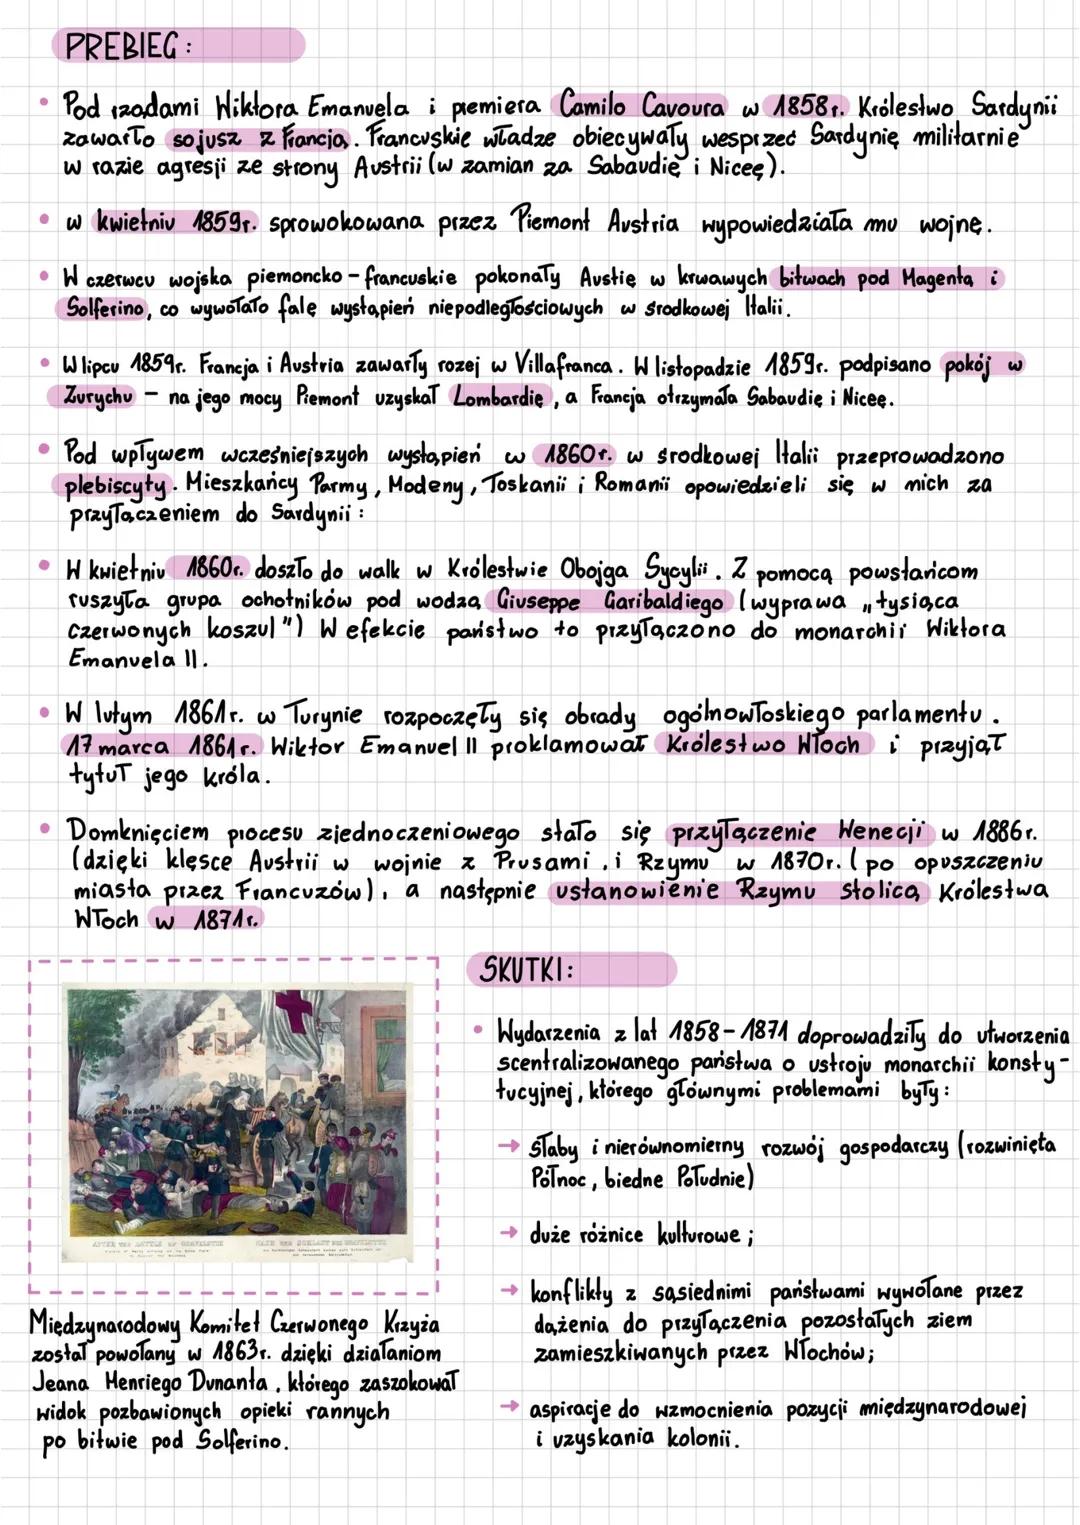 PREBIEG:
• Pod rządami Wiktora Emanuela i premiera Camilo Cavoura w 1858r. Królestwo Sardynii
zawarło sojusz z Francją. Francuskie władze obiecywały wesprzeć Sardynię militarnie
w razie agresji ze strony Austrii (w zamian za Sabaudię i Niceę).
• w kwietniu 1859r. sprowokowana przez Piemont Austria wypowiedziała mu wojnę.
• W czerwcu wojska piemoncko-francuskie pokonały Austię w krwawych bitwach pod Magentą i
Solferino, co wywołało falę wystąpień niepodległościowych w środkowej Italii.
• W lipcu 1859r. Francja i Austria zawarły rozej w Villafranca. W listopadzie 1859r. podpisano pokój w
Zurychu – na jego mocy Piemont uzyskał Lombardię, a Francja otrzymała Sabaudię i Niceę.
• Pod wpływem wcześniejszych wystąpień w 1860r. w środkowej Italii przeprowadzono
plebiscyty. Mieszkańcy Parmy, Modeny, Toskanii i Romanii opowiedzieli się w nich za
przyłączeniem do Sardynii:
• W kwietniu 1860r. doszło do walk w Królestwie Obojga Sycylii. Z pomocą powstańcom
ruszyła grupa ochotników pod wodzą Giuseppe Garibaldiego (wyprawa „tysiąca
czerwonych koszul") W efekcie państwo to przyłączono do monarchii Wiktora
Emanuela II.
• W lutym 1861r. w Turynie rozpoczęły się obrady ogólnowłoskiego parlamentu.
17 marca 1861r. Wiktor Emanuel II proklamował Królestwo Włoch i przyjął
tytuł jego króla.
• Domknięciem procesu zjednoczeniowego stało się przyłączenie Wenecji w 1886r.
(dzięki klęsce Austrii w wojnie z Prusami, i Rzymu w 1870r. (po opuszczeniu
miasta przez Francuzów), a następnie ustanowienie Rzymu stolicą Królestwa
Włoch w 1871r.
AFTER THE BATTLE OF GRAVELOTTE
NACH DER SCHLACHT BEI GRAVELOTTE
Międzynarodowy Komitet Czerwonego Krzyża
został powołany w 1863r. dzięki działaniom
Jeana Henriego Dunanta, którego zaszokował
widok pozbawionych opieki rannych
po bitwie pod Solferino.
SKUTKI:
• Wydarzenia z lat 1858-1871 doprowadziły do utworzenia
scentralizowanego państwa o ustroju monarchii konsty-
tucyjnej, którego głównymi problemami były:
→ słaby i nierównomierny rozwój gospodarczy (rozwinięta
Północ, biedne Południe)
→ duże różnice kulturowe;
→ konflikty z sąsiednimi państwami wywołane przez
dążenia do przyłączenia pozostałych ziem
zamieszkiwanych przez Włochów;
→ aspiracje do wzmocnienia pozycji międzynarodowej
i uzyskania kolonii.